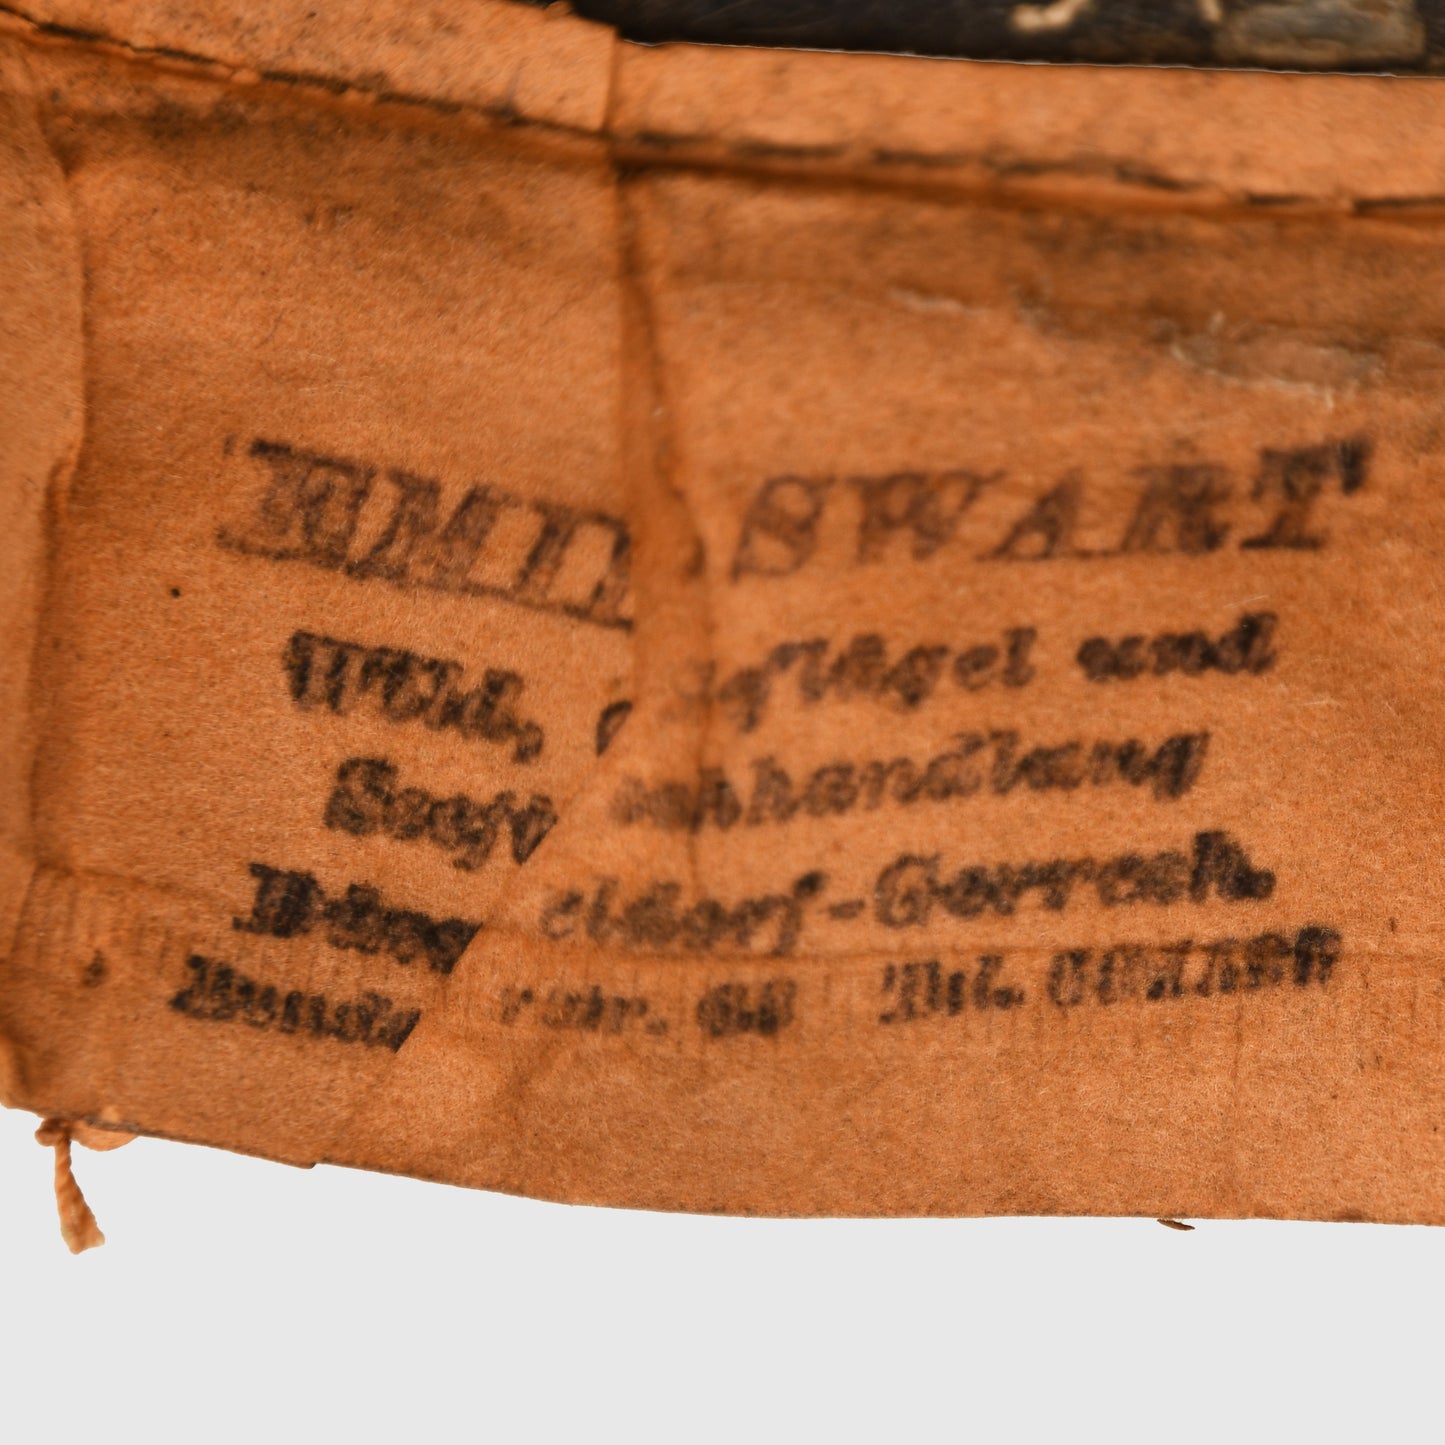 EMIL SWART
Wild, Geflügel und
Seefischhandlung
Düsseldorf-Gerresh.
str. 68 Tel.